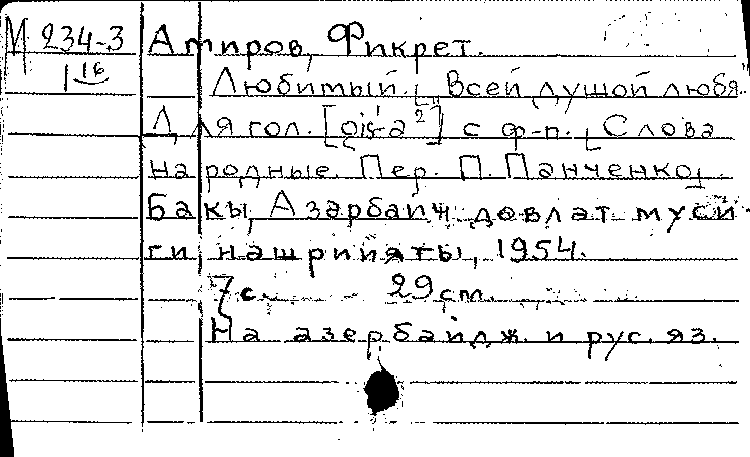 М 234-3 Амиров, Фикрет.
1 16
Любимый. [„Всей душой любя“.
Для гол. [gis¹-a²] с ф-п. [Слова
народные. Пер. П. Панченко].
Бакы, Азэрбайҹ. довлат муси-
ги нашрийяты, 1954.
7 с. 29 cm.
На азербайдж. и рус. яз.